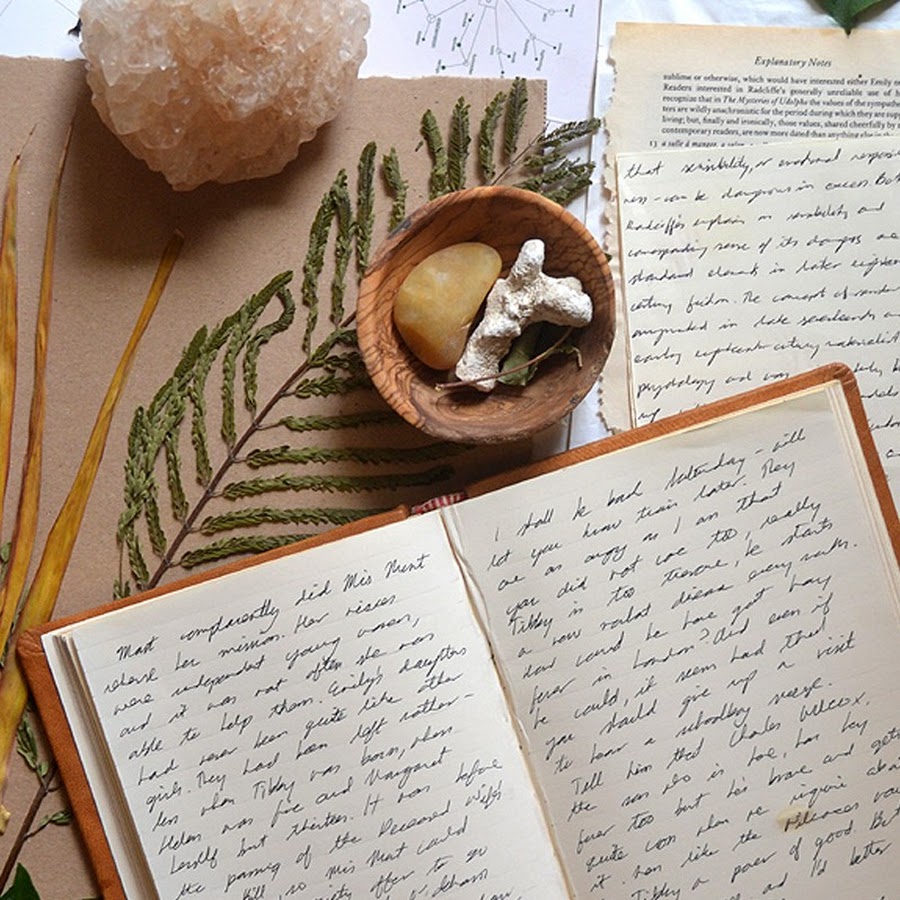 Explanatory Notes
sublime or otherwise, which would have interested either Emily
Readers interested in Radcliffe's generally unreliable use of
recognize that in The Mysteries of Udolpho the values of the
are wildly anachronistic for the period during which they are
living; but, finally and ironically, those values, shared cheerfully by
contemporary readers, are now more dated than anything else in
that sensibility, or emotional
ness - can be dangerous in excess.
Radcliffe's emphasis on sensibility and
corresponding sense of its dangers are
standard elements in later
century fiction. The concept of
originated in late seventeenth
early eighteenth-century
psychology and was
Most complacently did Mrs Munt
rehearse her mission. Her nieces
were independent young women,
and it was not often she was
able to help them. Emily's daughters
had never been quite like other
girls. They had been left mother-
less when Tibby was born, when
Helen was five and Margaret
herself but thirteen. It was before
the passing of the Deceased Wife's
Bill, so Mrs Munt could
offer to go
I shall be back Saturday - will
let you know train later. They
are as angry as I am that
you did not come too, really
Tibby is too tiresome, he starts
a new mortal disease every month.
How could he have got hay
fever in London? And even if
he could, it seems hard that
you should give up a visit
to hear a schoolboy sneeze.
Tell him that Charles Wilcox,
the son who is here, has hay
fever too but he's brave and gets
quite cross when we inquire
it. Men like the Wilcoxes
Tibby a power of good. But
and I'd better